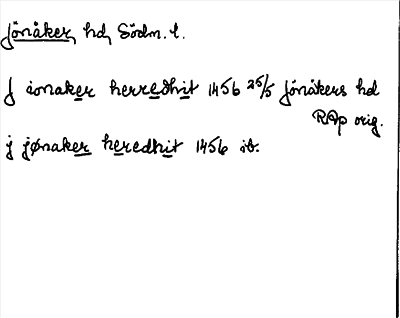 Jönåker, hd, Södm. l.
J ionaker herredhit 1456 25/5 Jönåkers hd
RAp orig.
j jønaker heredhit 1456 ib.